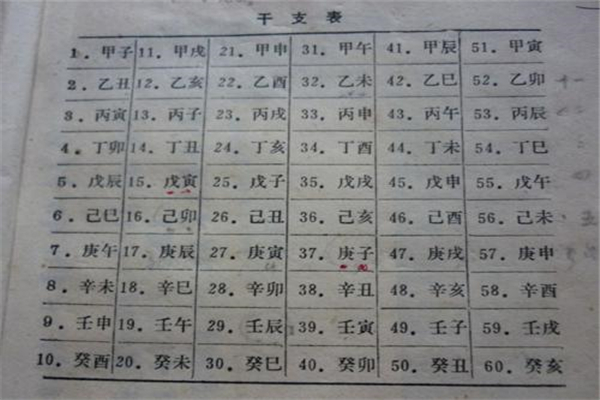 干支表
1.甲子 11.甲戌 21.甲申 31.甲午 41.甲辰 51.甲寅
2.乙丑 12.乙亥 22.乙酉 32.乙未 42.乙巳 52.乙卯
3.丙寅 13.丙子 23.丙戌 33.丙申 43.丙午 53.丙辰
4.丁卯 14.丁丑 24.丁亥 34.丁酉 44.丁未 54.丁巳
5.戊辰 15.戊寅 25.戊子 35.戊戌 45.戊申 55.戊午
6.己巳 16.己卯 26.己丑 36.己亥 46.己酉 56.己未
7.庚午 17.庚辰 27.庚寅 37.庚子 47.庚戌 57.庚申
8.辛未 18.辛巳 28.辛卯 38.辛丑 48.辛亥 58.辛酉
9.壬申 19.壬午 29.壬辰 39.壬寅 49.壬子 59.壬戌
10.癸酉 20.癸未 30.癸巳 40.癸卯 50.癸丑 60.癸亥